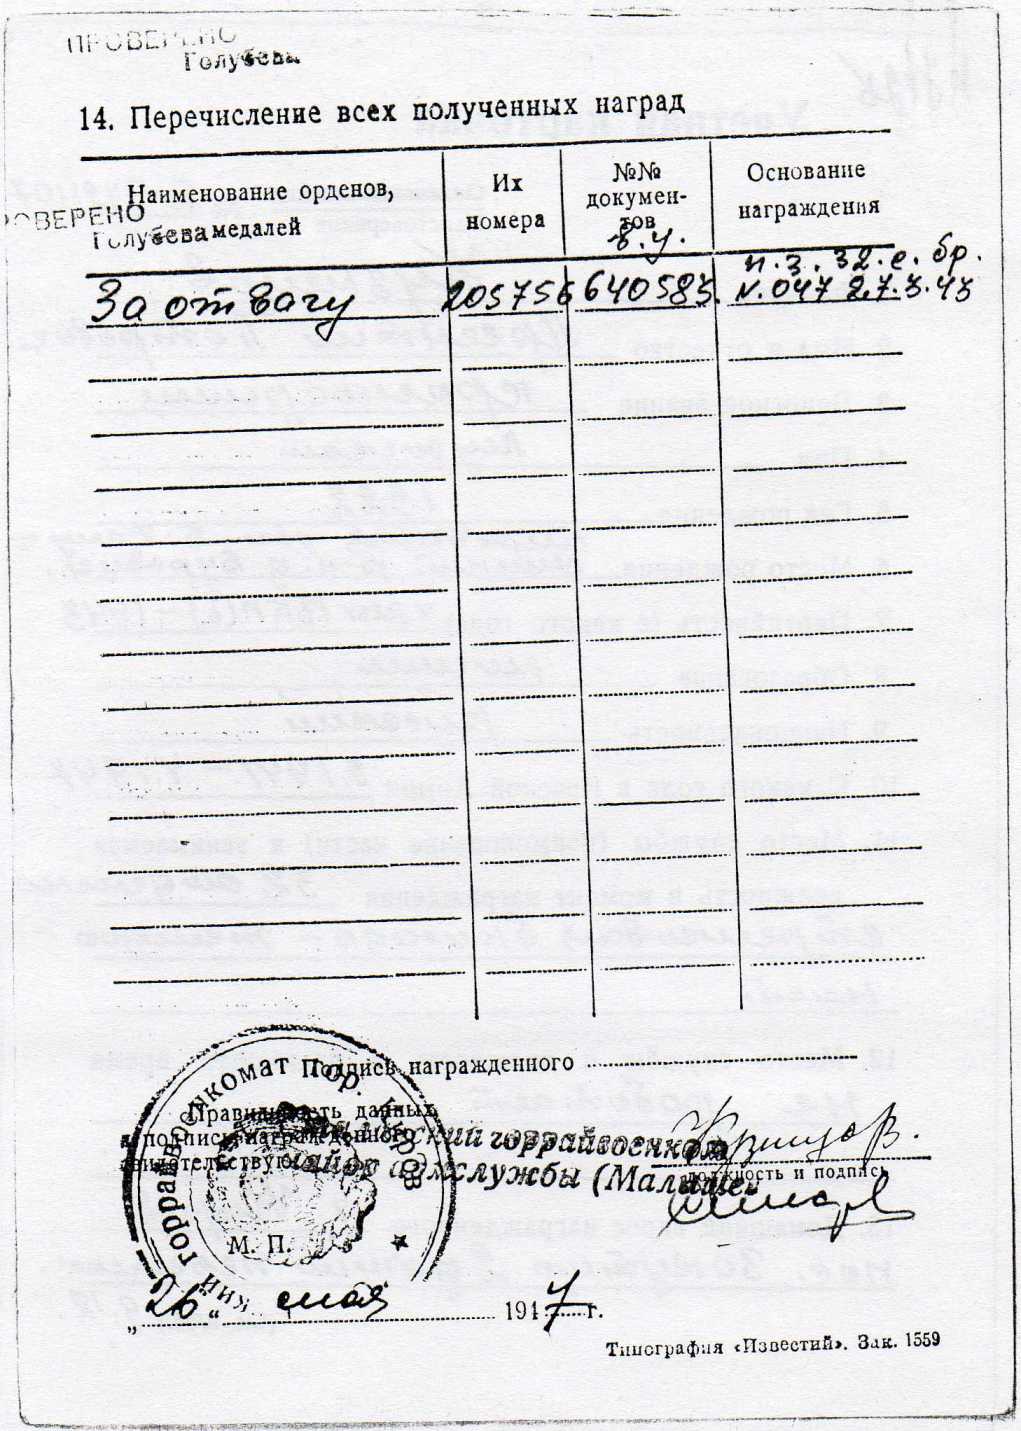 ПРОВЕРЕНО
Голубева
14. Перечисление всех полученных наград
Наименование орденов, медалей
Их номера
№№ докумен-тов
Основание награждения
ПРОВЕРЕНО
Голубева
в.у.
За отвагу 205756 640583. п.з. 32.с.бр. N.047 27.3.43
Подпись награжденного
Правильность данных
и подпись награжденного
свидетельствую
ский горрайвоенком
майор адм.службы (Малышев
должность и подпись
горрайвоенкомат Гор.
кий
М. П.
„26“ мая 1947 г.
Типография «Известий». Зак. 1559